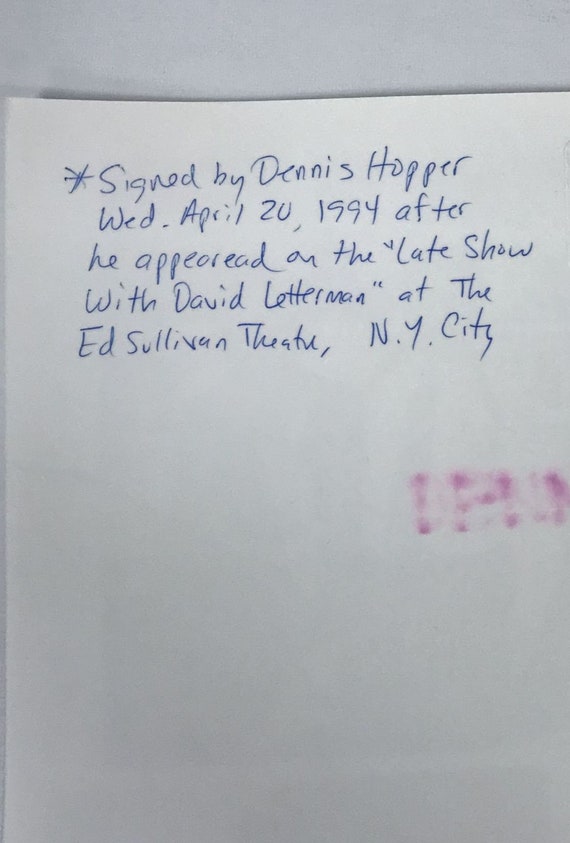 *Signed by Dennis Hopper
Wed. April 20, 1994 after
he appearead on the "Late Show
With David Letterman" at The
Ed Sullivan Theatre, N.Y. City